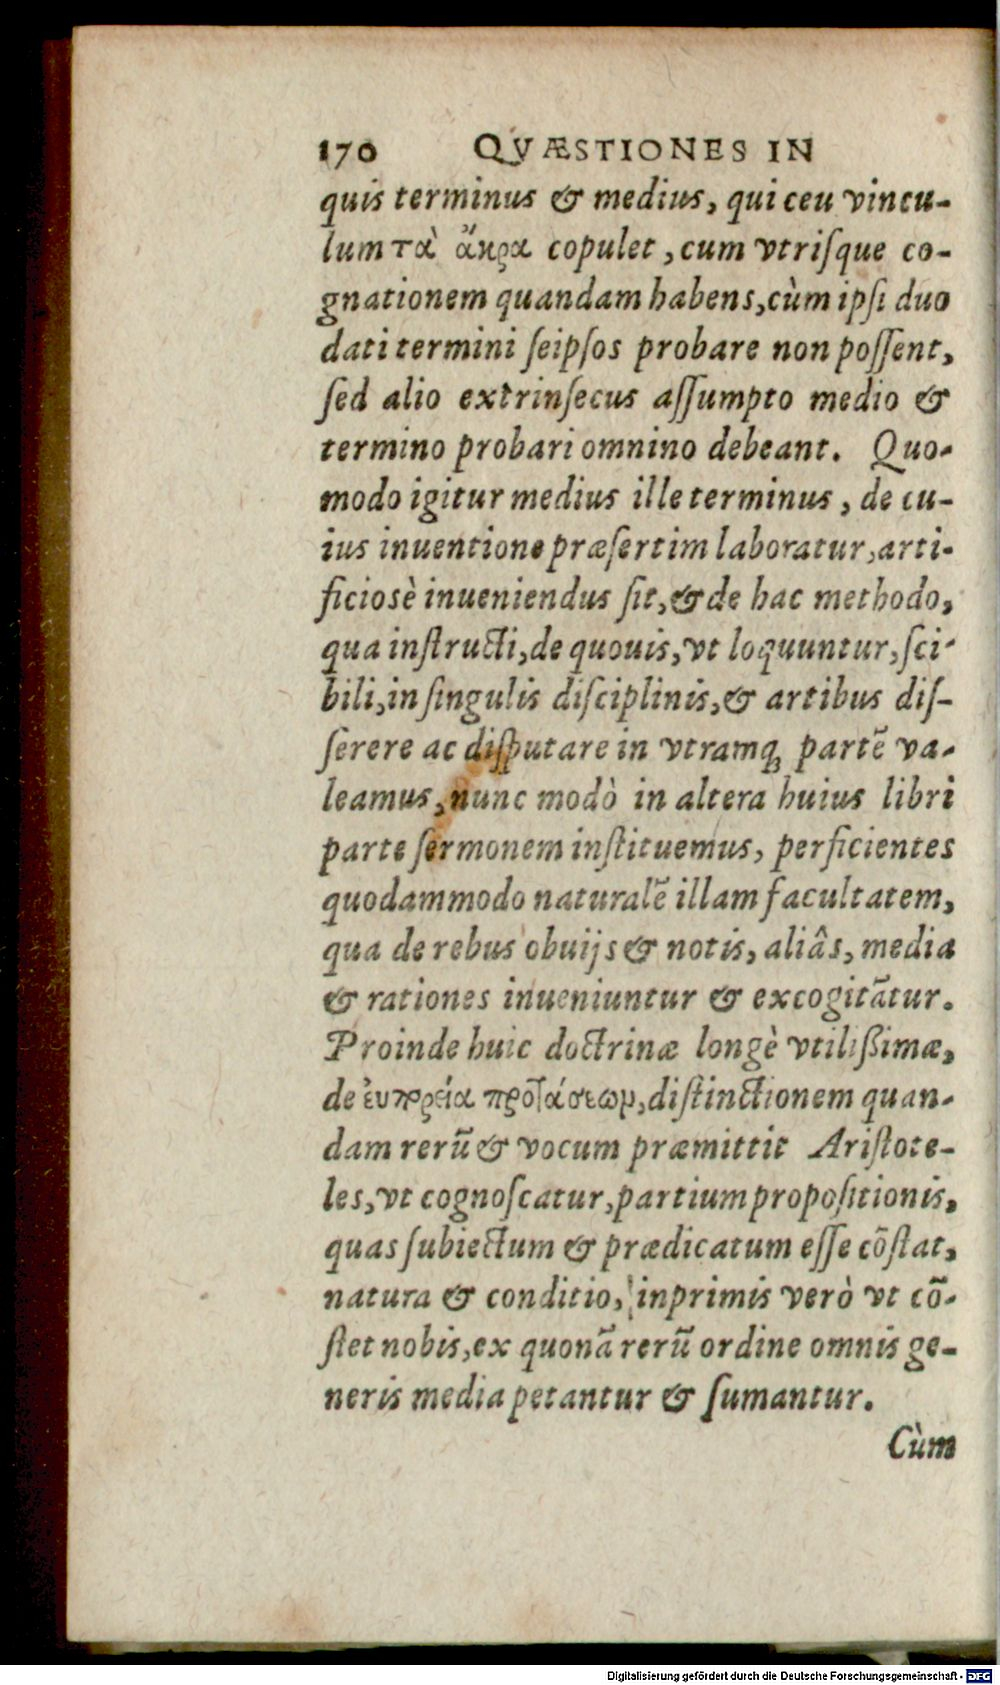 170 QVÆSTIONES IN
quis terminus & medius, qui ceu vincu-
lum τὰ ἄκρα copulet, cum vtriſque co-
gnationem quandam habens, cùm ipſi duo
dati termini ſeipſos probare non poſſent,
ſed alio extrinſecus aſſumpto medio &
termino probari omnino debeant. Quo-
modo igitur medius ille terminus, de cu-
ius inuentione præſertim laboratur, arti-
ficiosè inueniendus ſit, & de hac methodo,
qua inſtructi, de quouis, vt loquuntur, ſci-
bili, in ſingulis diſciplinis, & artibus diſ-
ſerere ac diſputare in vtramq; partē va-
leamus, nunc modò in altera huius libri
parte ſermonem inſtituemus, perficientes
quodammodo naturalē illam facultatem,
qua de rebus obuijs & notis, aliâs, media
& rationes inueniuntur & excogitātur.
Proinde huic doctrinæ longè vtilißimæ,
de ἐυπορεία προτάσεωμ, diſtinctionem quan-
dam rerū & vocum præmittit Ariſtote-
les, vt cognoſcatur, partium propoſitionis,
quas ſubiectum & prædicatum eſſe cōſtat,
natura & conditio, inprimis verò vt cō-
ſtet nobis, ex quonā rerū ordine omnis ge-
neris media petantur & ſumantur.
Cùm
Digitalisierung gefördert durch die Deutsche Forschungsgemeinschaft - DFG